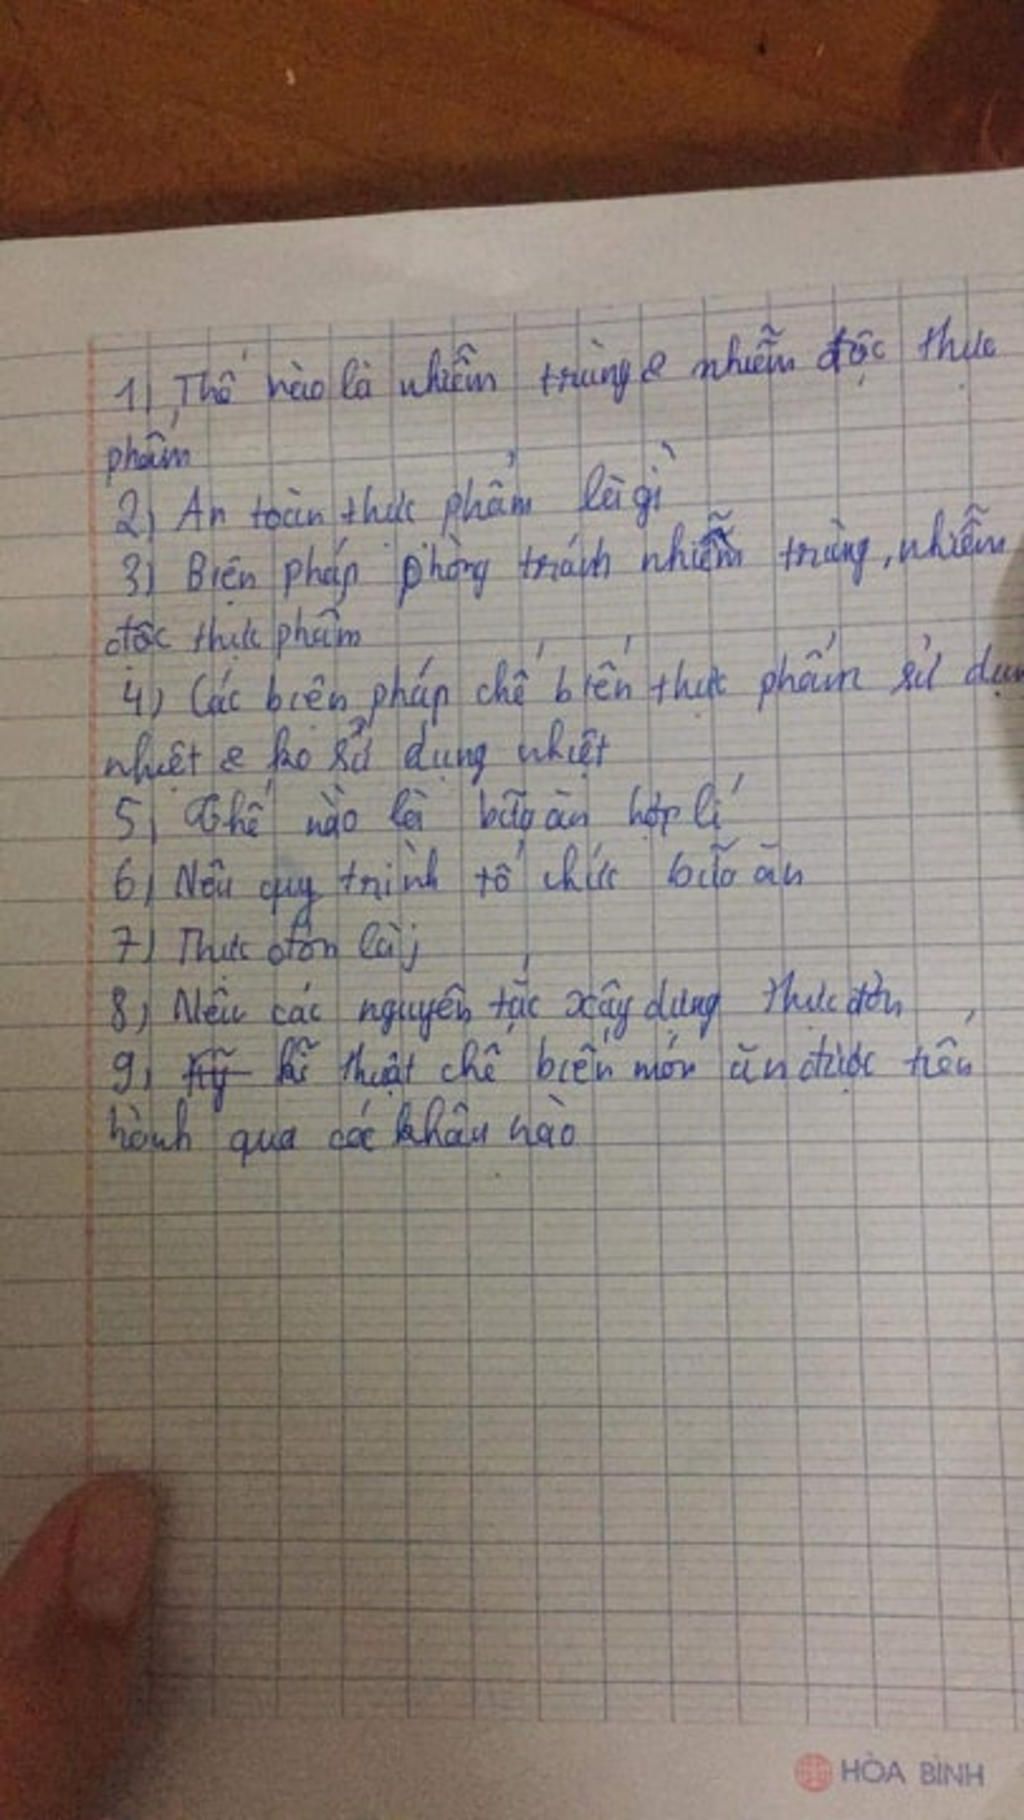 1) Thế nào là nhiễm trùng & nhiễm độc thực
phẩm
2) An toàn thực phẩm là gì
3) Biện pháp phòng tránh nhiễm trùng, nhiễm
độc thực phẩm
4) Các biện pháp chế biến thực phẩm sử
nhiệt & ko sử dụng nhiệt
5) Thế nào là bữa ăn hợp lí
6) Nêu quy trình tổ chức bữa ăn
7) Thực đơn là
8) Nêu các nguyên tắc xây dựng thực đơn
9) kĩ thuật chế biến món ăn được tiến
hành qua các khâu nào
HÒA BÌNH